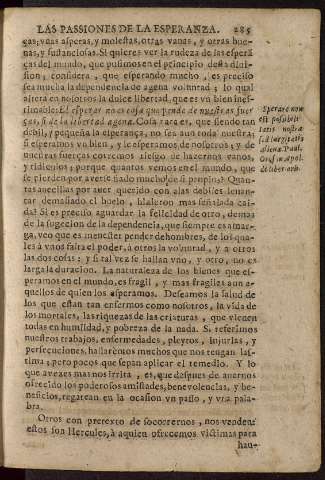 LAS PASSIONES DE LA ESPERANZA. 285
ças; vnas asperas, y molestas, otras vanas, y otras bue-
nas, y sustanciosas. Si quieres ver la rudeza de las esperā
ças del mundo, que pusimos en el principio desta diui-
sion; considera, que esperando mucho, es preciso
sea mucha la dependencia de agena voluntad; lo qual
altera en nosotros la dulce libertad, que es vn bien inef-
timable. El esperar no es cosa que penda de nuestras fuer
ças, si de la libertad agena. Cosa rara es, que siendo tan
debil, y pequeña la esperança, no sea aun toda nuestra;
si esperamos vn bien, y le esperamos de nosotros; y de
nuestras fuerças corremos riesgo de hazernos vanos,
y ridiculos; porque quantos vemos en el mundo, que
se pierden por averse fiado mucho de si propios? Quan-
tas auecillas por auer querido con alas debiles leuan-
tar demasiado el buelo, hizieron mas señalada cai-
da? Si es preciso aguardar la felicidad de otro, demas
de la sugecion de la dependencia, que siempre es amar-
ga, veo que es menester pender de hombres, de los qua-
les à vnos falta el poder, à otros la voluntad, y à otros
las dos cosas; y si tal vez se hallan vno, y otro, no es
larga la duracion. La naturaleza de los bienes que es-
peramos en el mundo, es fragil, y mas fragiles aun a-
quellos de quien los esperamos. Deseamos la salud de
los que estan tan enfermos como nosotros, la vida de
los mortales, las riquezas de las criaturas, que vienen
todas en humildad, y pobreza de la nada. Si referimos
nuestros trabajos, enfermedades, pleytos, injurias, y
persecuciones, hallarèmos muchos que nos tengan las-
tima; pero pocos que sepan aplicar el remedio. Y lo
que a vezes mas nos irrita, es, que despues de auernos
ofrecido los poderosos amistades, beneuolencias, y be-
neficios, regatean en la ocasion vn passo, y vna pala-
bra.
Otros con pretexto de socorrernos, nos venden;
estos son Hercules, à quien ofrecemos victimas para
hau-
Sperare non
est possibili
tatis nostræ
sed largitatis
alienæ. Paul.
Oros. in Apol.
de liber. arb.